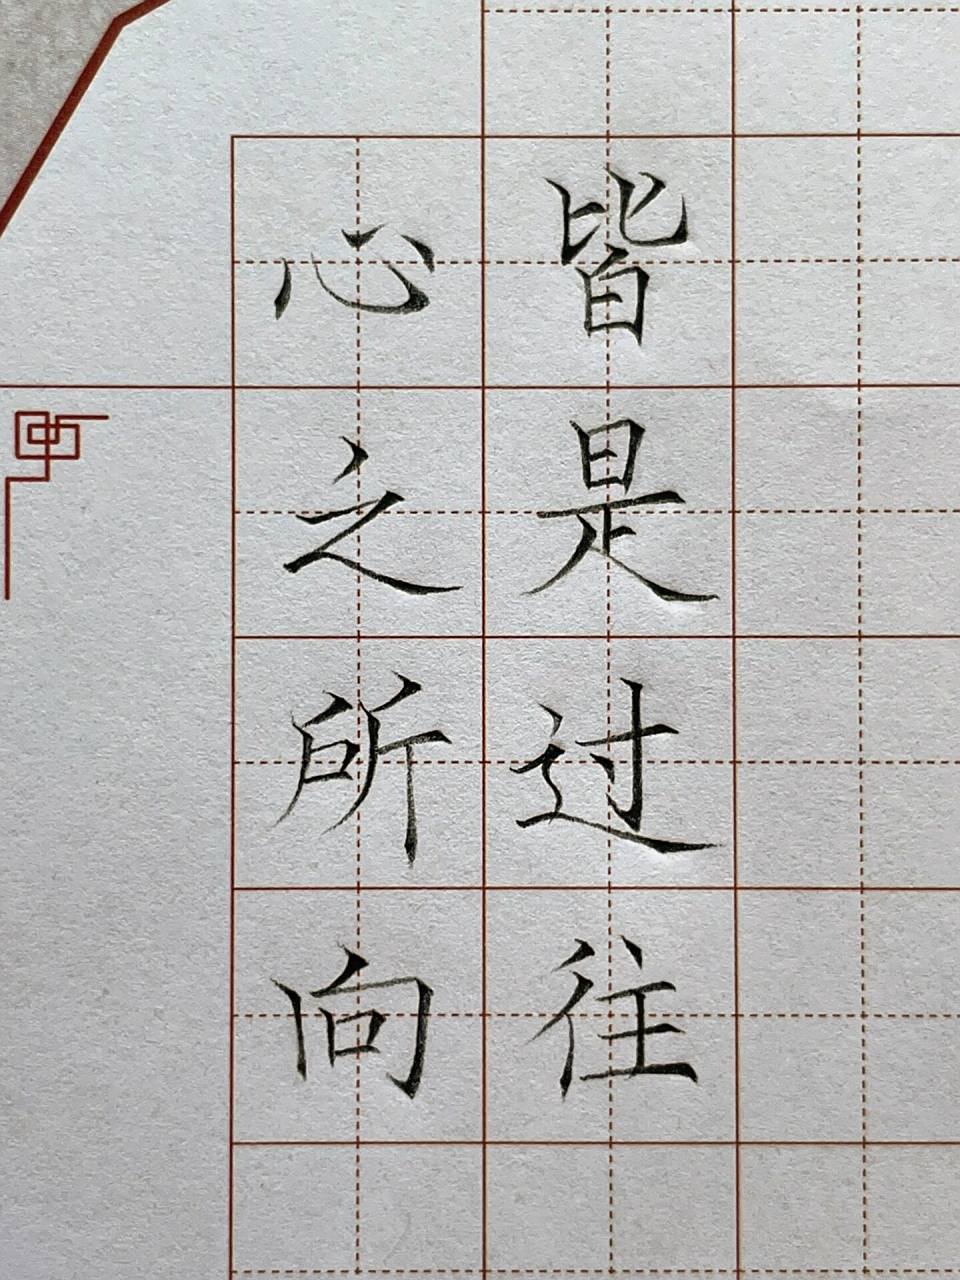 皆是过往
心之所向